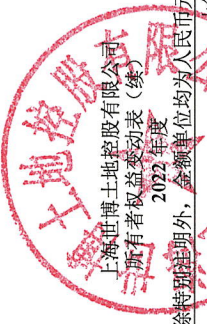 上海世博土地控股有限公司
所有者权益变动表（续）
2022 年度
除特别注明外，金额单位均为人民币
土地控股